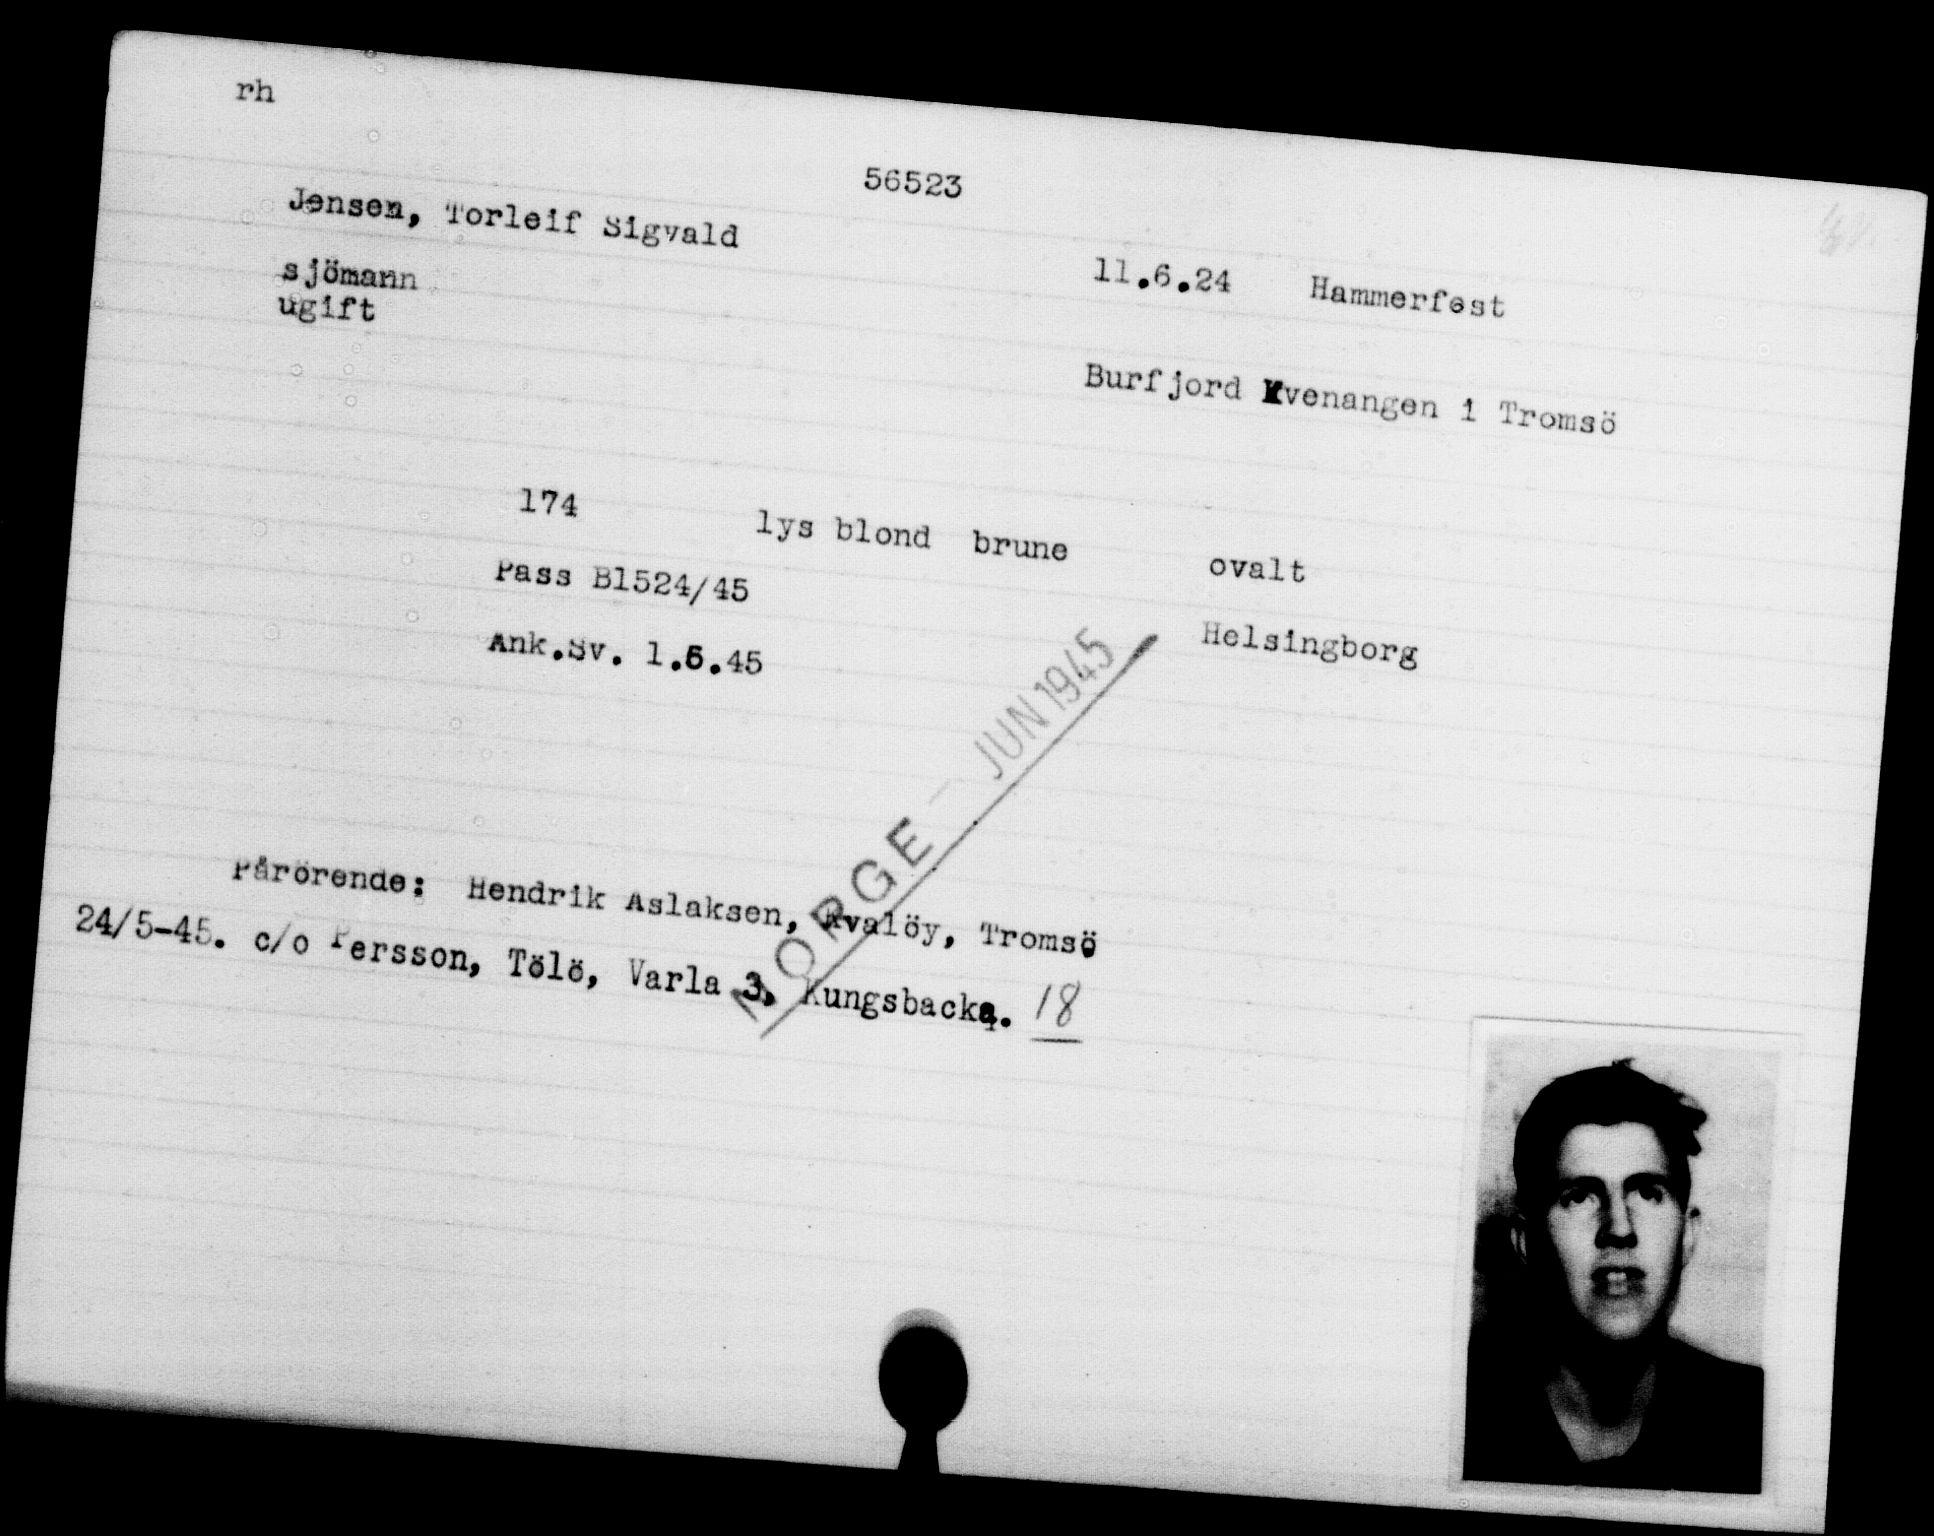 rh
56523
Jensen, Torleif Sigvald
11.6.24 Hammerfest
sjömann
ugift
Burfjord Kvenangen i Tromsö
174 lys blond brune ovalt
Pass B1524/45
Ank.Sv. 1.5.45 Helsingborg
NORGE – JUN 1945
Pårörende: Hendrik Aslaksen, Kvalöy, Tromsö
24/5-45. c/o Persson, Tölö, Varla 3, Kungsbacka. 18